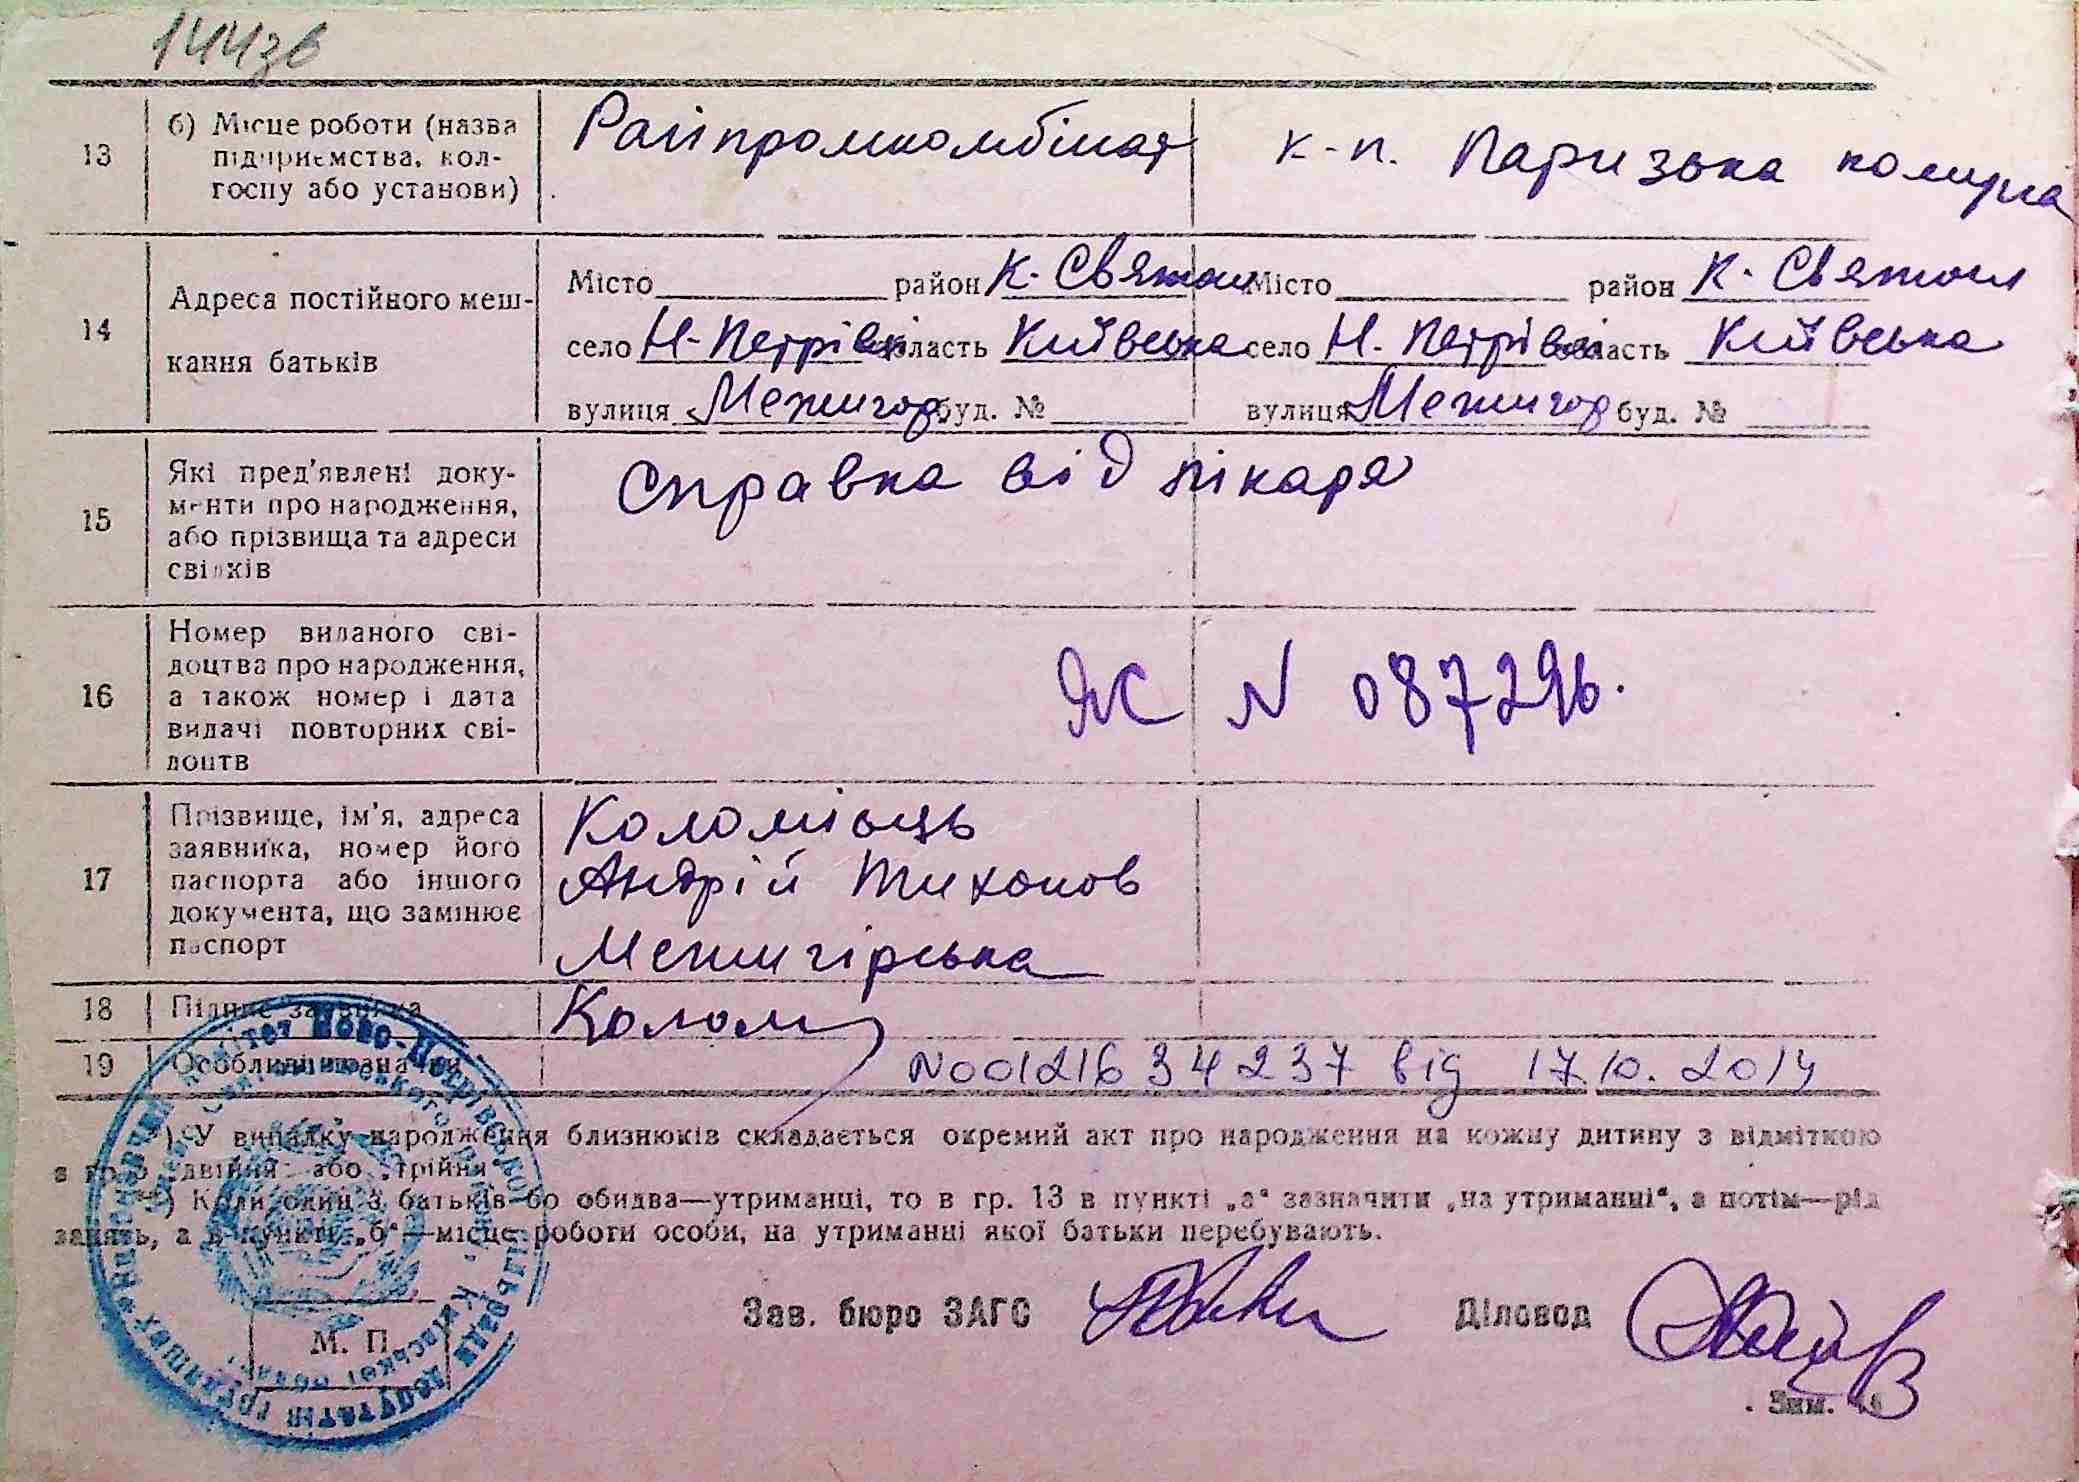 144зв
13
б) Місце роботи (назва
підприємства, кол-
госпу або установи)
Райпромкомбінат
к-п. Паризька комуна
14
Адреса постійного меш-
кання батьків
Місто район К. Святош
село Н-Петрівка область Київська
вулиця Межигор буд. №
Місто район К. Святош
село Н. Петрівка область Київська
вулиця Межигор буд. №
15
Які пред'явлені доку-
менти про народження,
або прізвища та адреси
свідків
Справка від лікаря
16
Номер виданого сві-
доцтва про народження,
а також номер і дата
видачі повторних сві-
доцтв
ЯС N 087296.
17
Прізвище, ім'я, адреса
заявника, номер його
паспорта або іншого
документа, що замінює
паспорт
Коломієць
Андрій Тихонов
Межигірська
18
Підпис заявника
Колом
19
Особливі позначки
N00121634237 від 17.10.2014
*) У випадку народження близнюків складається окремий акт про народження на кожну дитину з відміткою
в гр. „двійня" або „трійня"
**) Коли один з батьків бо обидва—утриманці, то в гр. 13 в пункті „а" зазначити „на утриманні", а потім—рід
занять, а в пункті „б"—місце роботи особи, на утриманні якої батьки перебувають.
Зав. бюро ЗАГС
Діловод
М. П.
Зам.